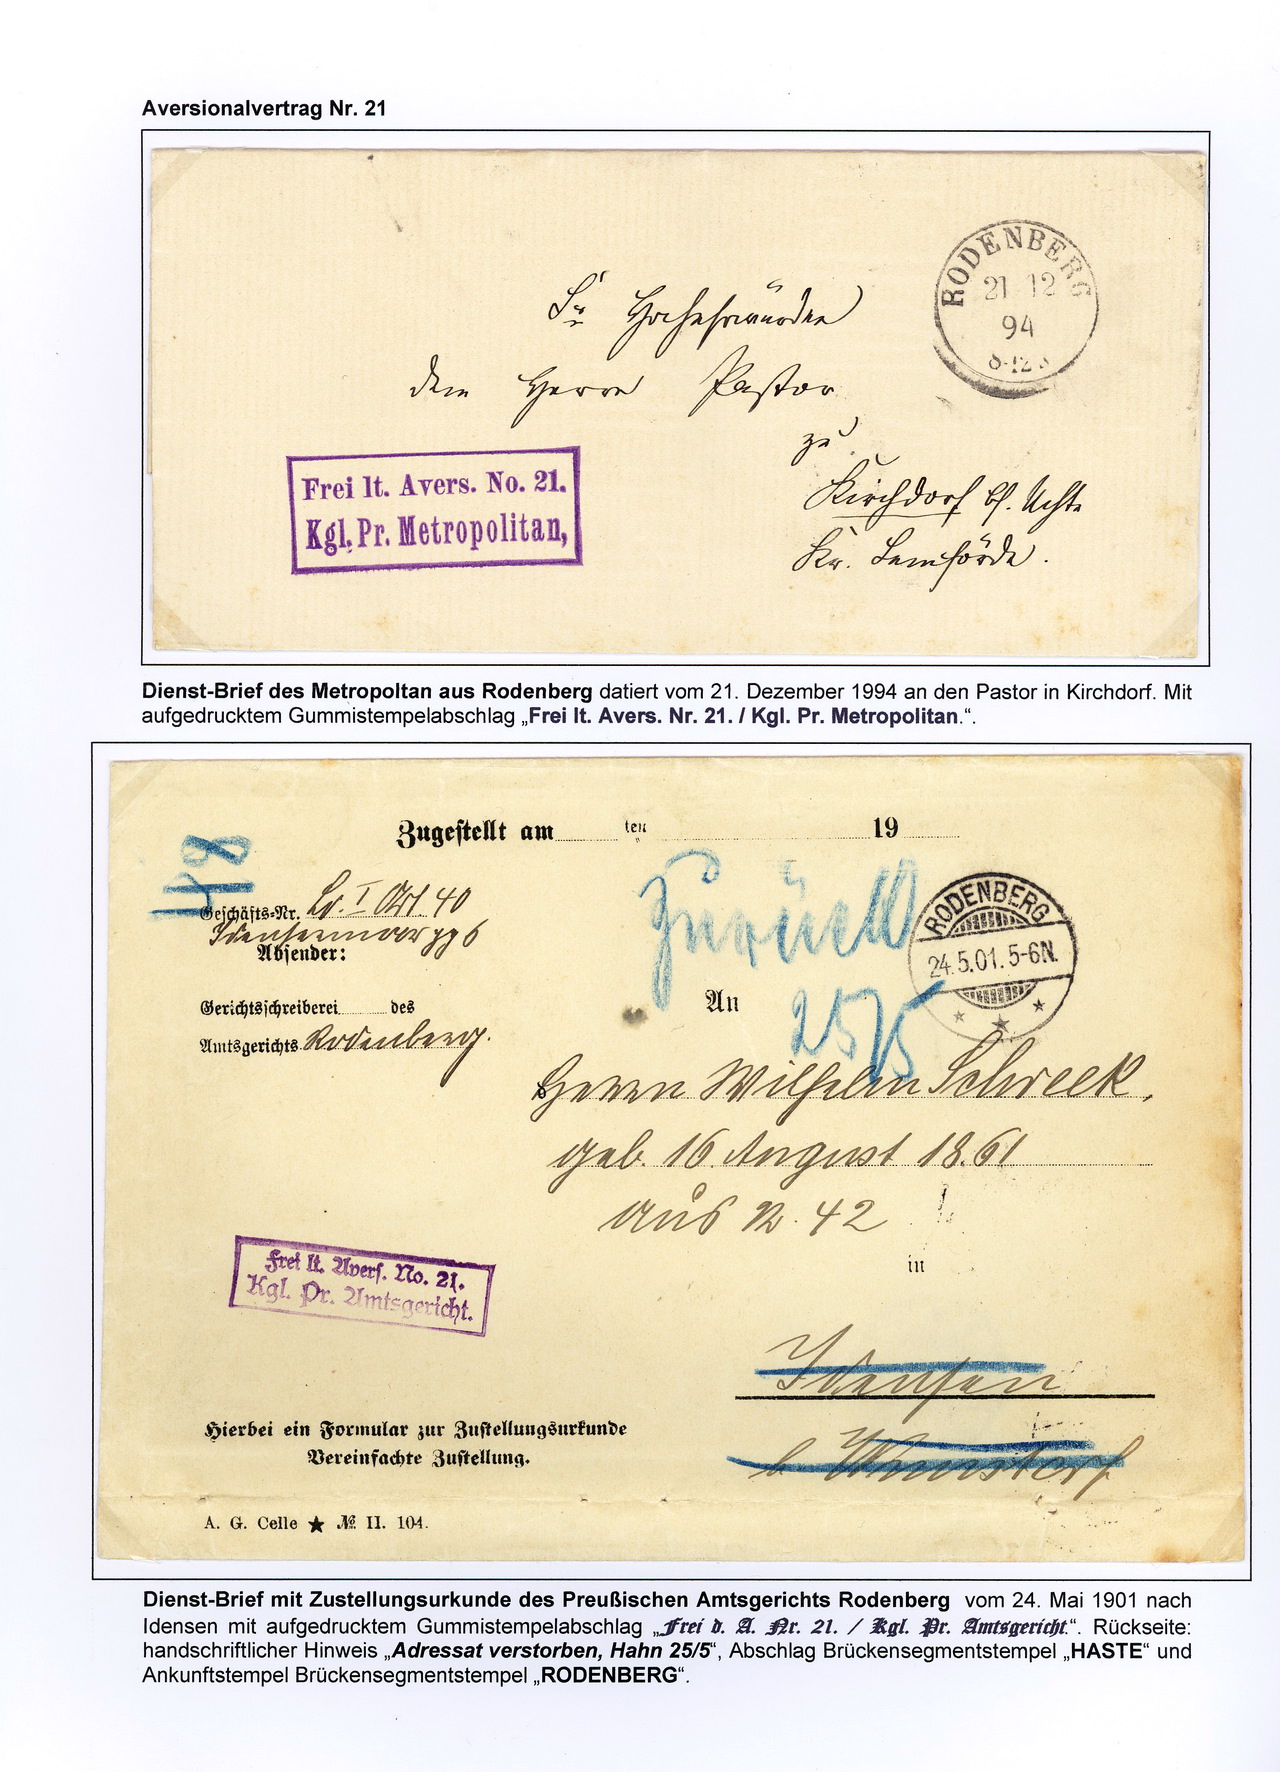 Aversionalvertrag Nr. 21
RODENBERG
21 12
94
Sr Hochehrwürden
dem Herrn Pastor
zu
Kirchdorf bf. Uchte
Kr. Lemförde.
Frei lt. Avers. No. 21.
Kgl. Pr. Metropolitan,
Dienst-Brief des Metropoltan aus Rodenberg datiert vom 21. Dezember 1994 an den Pastor in Kirchdorf. Mit
aufgedrucktem Gummistempelabschlag „Frei lt. Avers. Nr. 21. / Kgl. Pr. Metropolitan.“.
Zugestellt am ten 19
Geschäfts-Nr. Art 40
Absender:
Gerichtsschreiberei des
Amtsgerichts Rodenberg.
Zurück
25/5
RODENBERG
24.5.01.5-6N.
An
Herrn Wilhelm Schreek,
geb. 16 August 1861
aus N. 42
in
Idensen
b Wunstorf
Frei lt. Avers. No. 21.
Kgl. Pr. Amtsgericht.
Hierbei ein Formular zur Zustellungsurkunde
Vereinfachte Zustellung.
A. G. Celle ★ № II. 104.
Dienst-Brief mit Zustellungsurkunde des Preußischen Amtsgerichts Rodenberg vom 24. Mai 1901 nach
Idensen mit aufgedrucktem Gummistempelabschlag „Frei d. A. Nr. 21. / Kgl. Pr. Amtsgericht.“. Rückseite:
handschriftlicher Hinweis „Adressat verstorben, Hahn 25/5“, Abschlag Brückensegmentstempel „HASTE“ und
Ankunftstempel Brückensegmentstempel „RODENBERG“.